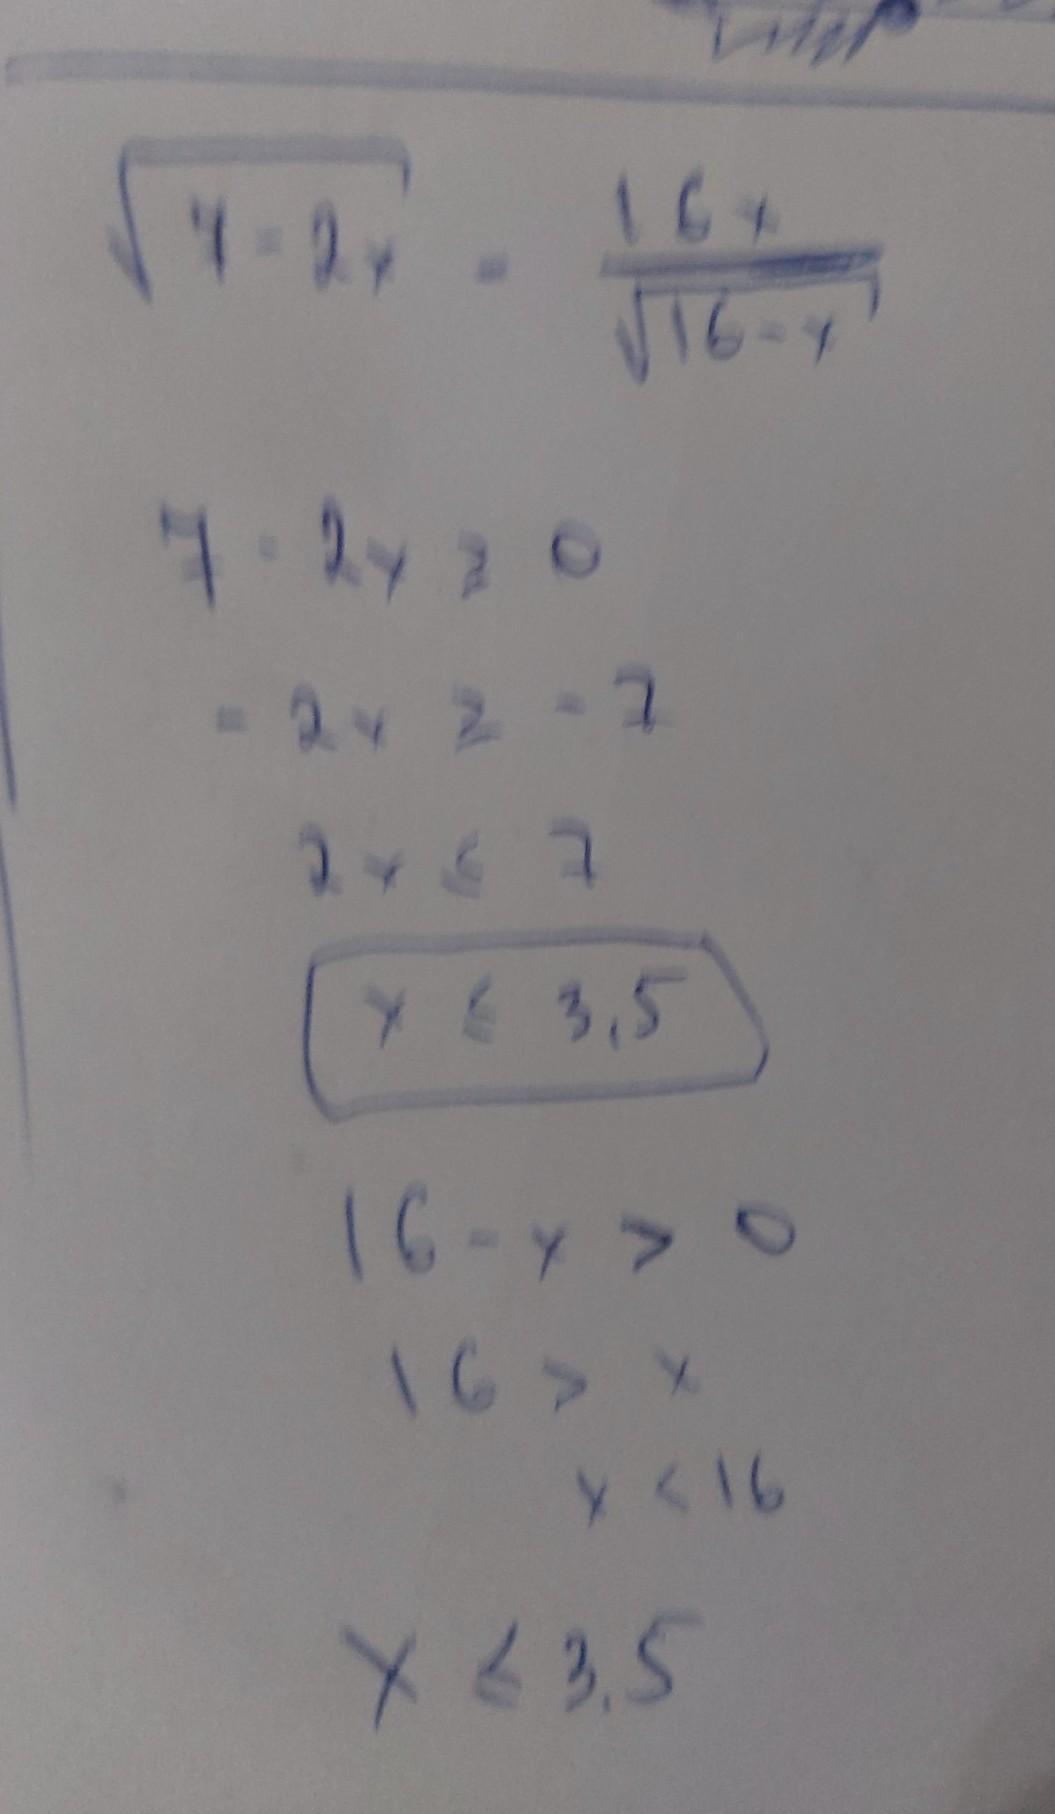 √(7-2x) - 16x/√(16-x)
7-2x ≥ 0
-2x ≥ -7
2x ≤ 7
x ≤ 3,5
16-x > 0
16 > x
x < 16
x ≤ 3,5